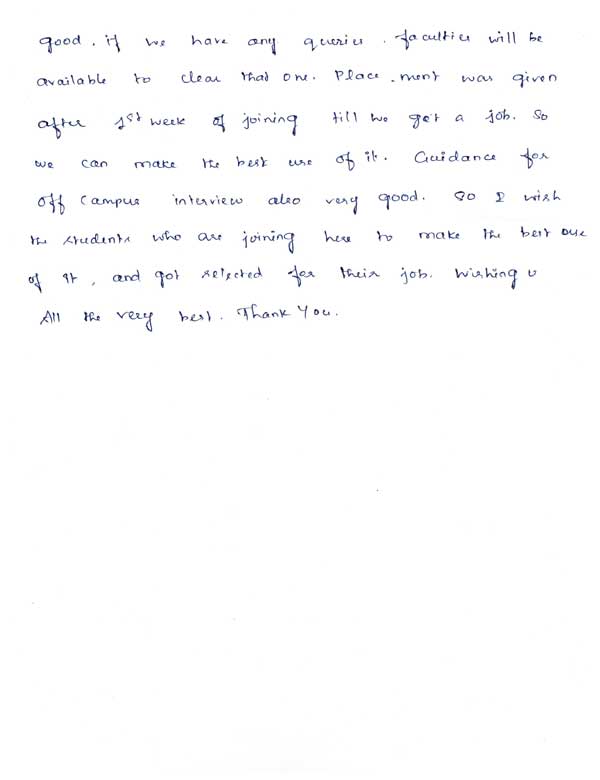 good. if we have any queries. faculties will be
available to clear that one. Place.ment was given
after 1st week of joining till we get a job. So
we can make the best use of it. Guidance for
off campus interview also very good. So I wish
the students who are joining here to make the best use
of it, and got selected for their job. Wishing u
All the very best. Thank You.